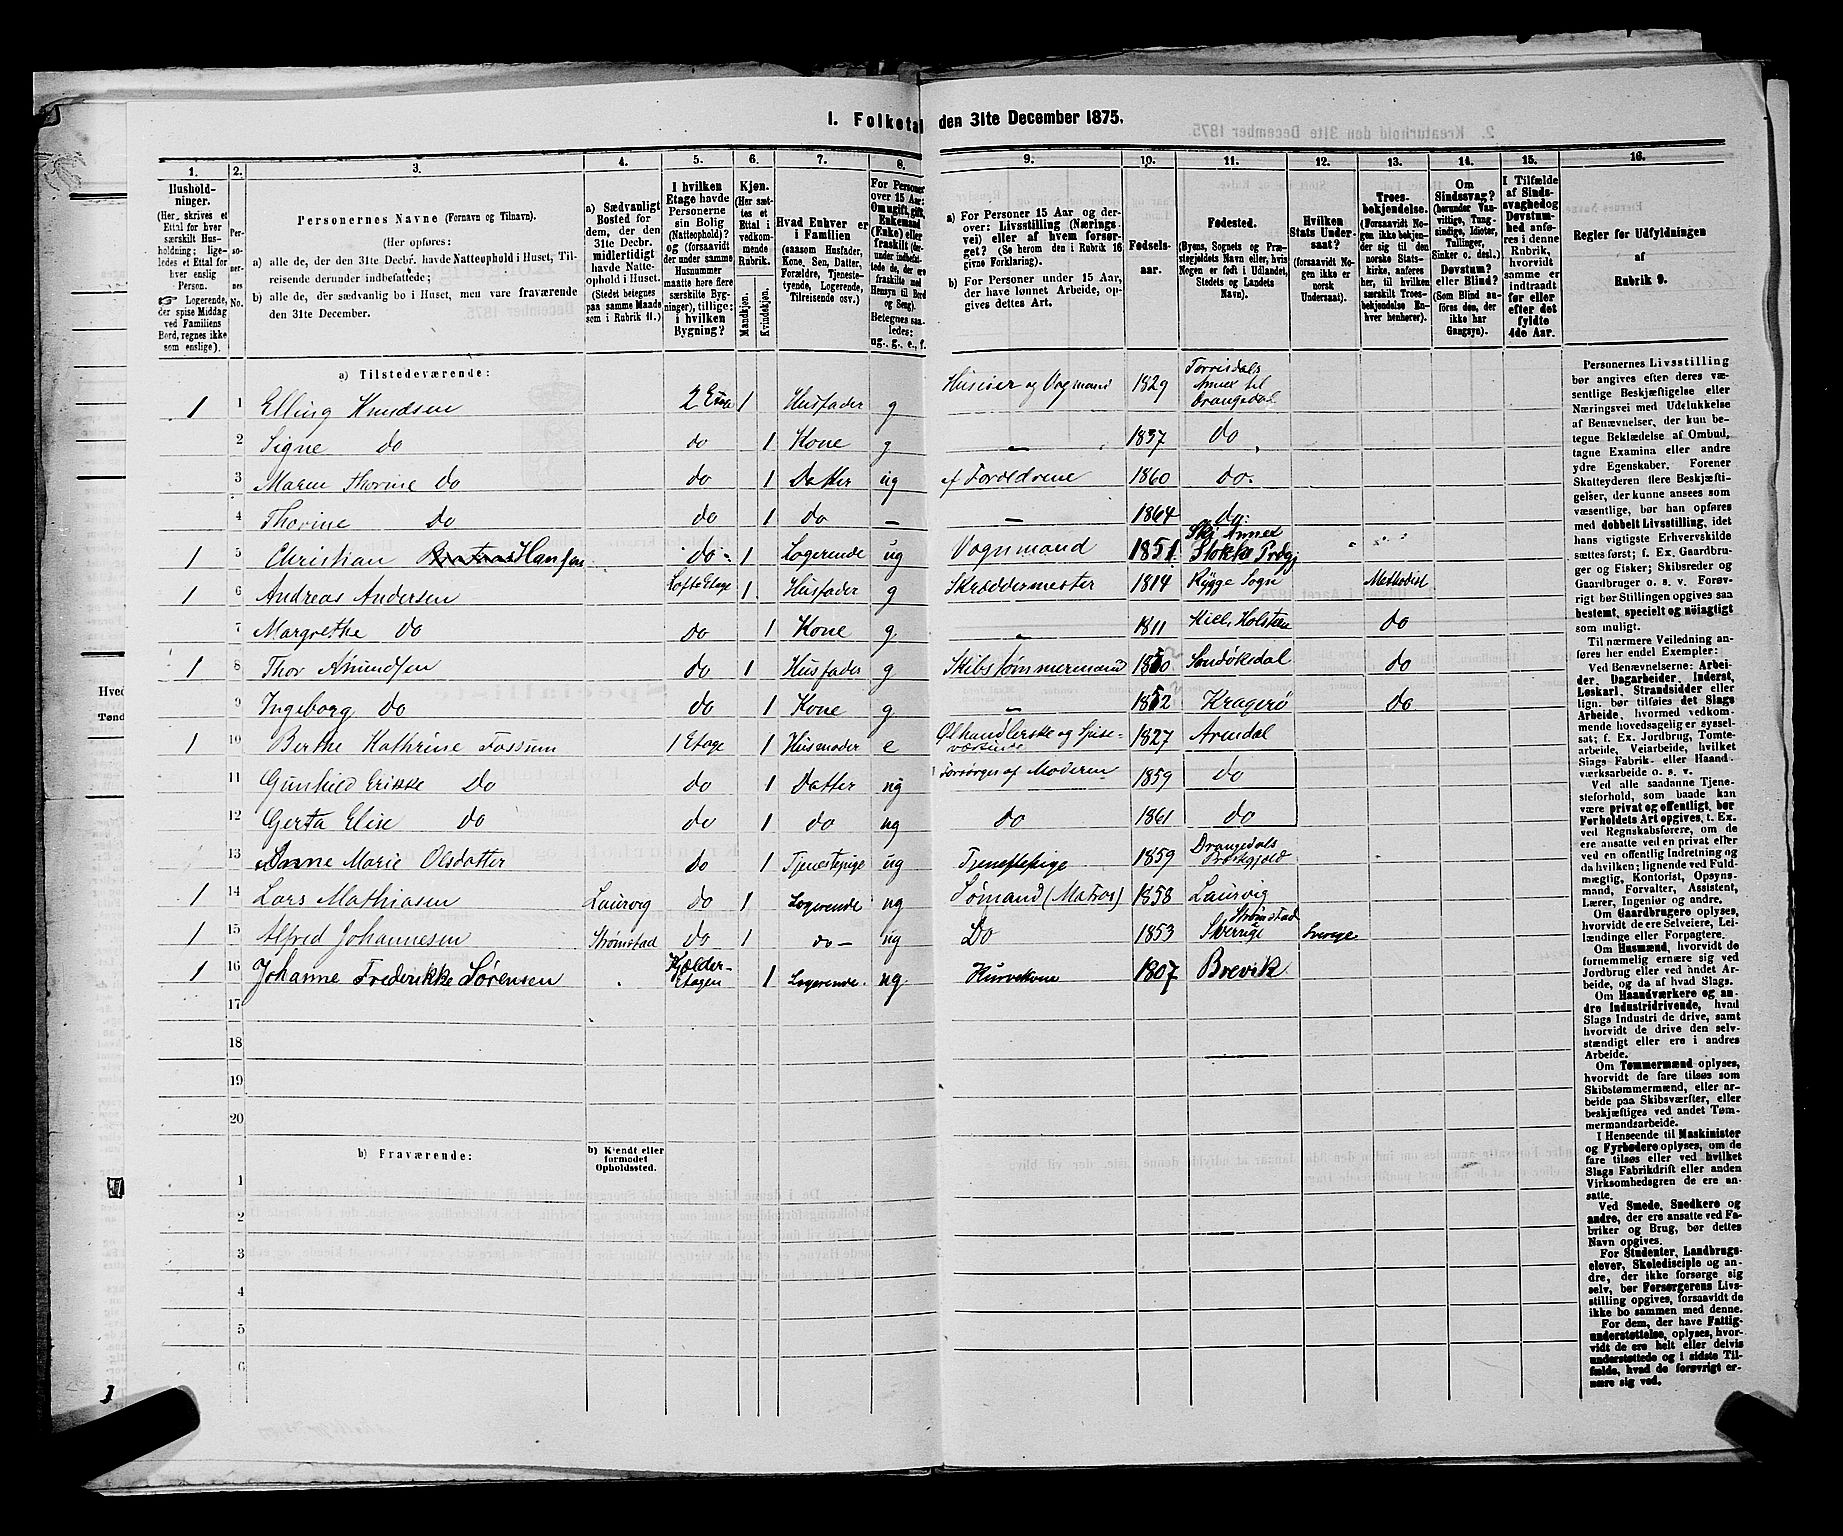 1. Folketal den 31te December 1875.
1.
2.
3.
4.
5.
6.
7.
8.
9.
10.
11.
12.
13.
14.
15.
16.
Hushold-
ninger.
(Her skrives et
Ettal for hver
særskilt Hus-
holdning; lige-
ledes et Ettal for
hver enslig
Person.
☞ Logerende,
der spise Middag
ved Familiens
Bord, regnes ikke
som enslige).
Per-
so-
ner-
nes
No.
Personernes Navne (Fornavn og Tilnavn).
(Her opføres:
a) alle de, der den 31te Decbr. havde Natteophold i Huset, Til-
reisende derunder indbefattede;
b) alle de, der sædvanlig bo i Huset, men vare fraværende
den 31te December.
a) Sædvanligt
Bosted for
dem, der den
31te Decbr.
midlertidigt
havde Natte-
ophold i Huset.
(Stedet betegnes
paa samme Maade
som i Rubrik 11.)
I hvilken
Etage havde
Personerne
sin Bolig
(Natteophold)?
og (forsaavidt
der under samme
Husnummer
maatte høre flere
særskilte Byg-
ninger), tillige:
i hvilken
Bygning?
Kjøn.
(Her sæt-
tes et
Ettal i
vedkom-
mende
Rubrik.
Mandkjøn.
Kvindekjøn.
Hvad Enhver er
i Familien
(saasom Husfader,
Kone, Søn, Datter,
Forældre, Tjeneste-
tyende, Logerende,
Tilreisende osv.)
For Personer
over 15 Aar:
Om ugift, gift,
Enkemand
(Enke) eller
fraskilt (der-
under indbefat-
tede de, der ere
fraskilte med
Hensyn til Bord
og Seng).
Betegnes saa-
ledes:
ug., g., e., f.
a) For Personer 15 Aar og der-
over: Livsstilling (Nærings-
vei) eller af hvem forsør-
get? (Se herom den i Rubrik 16
givne Forklaring).
b) For Personer under 15 Aar,
der have lønnet Arbeide, op-
gives dettes Art.
Fødsels-
aar.
Fødested.
(Byens, Sognets og Præ-
stegjeldets Navn eller, hvis
Nogen er født i Udlandet,
Stedets og Landets
Navn).
Hvilken
Stats Under-
saat?
(forsaavidt No-
gen ikke er
norsk
Undersaat).
Troes-
bekjendelse.
(Forsaavidt No-
gen ikke bekjen-
der sig til den
norske Stats-
kirke, anføres
her, til hvilken
særskilt Troes-
bekjendelse En-
hver henhører).
Om
Sindssvag?
(herunder Van-
vittige, Tung-
sindige, Idioter,
Tullinger,
Sinker o. desl.).
Døvstum?
eller Blind?
(Som Blind an-
føres den, der
ikke har
Gangsyn).
I Tilfælde
af Sinds-
svaghed og
Døvstum-
hed anfø-
res i denne
Rubrik,
hvorvidt
samme er
indtraadt
før eller
efter det
fyldte
4de Aar.
Regler for Udfyldningen
af
Rubrik 9.
a) Tilstedeværende:
1 1 Elling Knudsen 2 Etage 1 Husfader g Huseier og Vognmand 1829 Torrisdals Annex til Drangedal
2 Signe do do 1 Kone g — 1837 do
3 Maren Thorine do do 1 Datter ug af Forældrene 1860 do.
4 Thorine do do 1 do — — 1864 do.
1 5 Christian Hansen do 1 Logerende ug Vognmand 1851 Ski Annex Stokke Præstgj
1 6 Andreas Andersen Lofts Etage 1 Husfader g Skræddermester 1814 Rygge Sogn Methodist
7 Margrethe do do 1 Kone g. — 1811 Kiel, Holsten do
1 8 Thor Amundsen do 1 Husfader g Skibstømmermand 1850 Sandøkedal do
9 Ingeborg do do 1 Kone g — 1852 Kragerø do
1 10 Berthe Kathrine Fossum 1 Etage 1 Husmoder e Ølhandlerske og Spise-
værtinde 1827 Arendal
11 Gunhild Erikke do do 1 Datter ug Forsørges af Moderen 1859 do
12 Gerta Elise do do 1 do ug do 1861 do
13 Anne Marie Olsdatter do 1 Tjenestepige ug Tjenestepige 1859 Drangedals Præstegjeld
1 14 Lars Mathiasen Laurvig do 1 Logerende ug Sømand (Matros) 1858 Laurvig
1 15 Alfred Johannesen Strømstad do 1 do— ug Do 1853 Strømstad Sverige Sverige
1 16 Johanne Frederikke Sørensen Kjelder-
Etagen 1 Logerende ug. Kurvekone 1807 Brevik
17
18
19
20
b) Fraværende:
b) Kjendt eller
formodet
Opholdssted.
1
2
3
4
5
6
Personernes Livsstilling
bør angives efter deres væ-
sentlige Beskjæftigelse eller
Næringsvei med Udelukkelse
af Benævnelser, der kun be-
tegne Beklædelse af Ombud,
tagne Examina eller andre
ydre Egenskaber. Forener
Skatteyderen flere Beskjæfti-
gelser, der kunne ansees som
væsentlige, bør han opføres
med dobbelt Livsstilling, idet
hans vigtigste Erhvervskilde
sættes først; f. Ex. Gaardbru-
ger og Fisker; Skibsreder og
Gaardbruger o. s. v. Forøv-
rigt bør Stillingen opgives saa
bestemt, specielt og nøiagtigt
som muligt.
Til nærmere Veiledning an-
føres her endel Exempler:
Ved Benævnelserne: Arbei-
der, Dagarbeider, Inderst,
Løskarl, Strandsidder eller
lign. bør tilføies det Slags
Arbeide, hvormed vedkom-
mende hovedsagelig er syssel-
sat; f. Ex. Jordbrug, Tomte-
arbeide, Veiarbeide, hvilket
Slags Fabrik- eller Haand-
værksarbeide o. s. v.
Ved alle saadanne Tjene-
steforhold, som baade kan
være privat og offentligt, bør
Forholdets Art opgives, t. Ex.
ved Regnskabsførere, om de
ere ansatte ved en privat eller
ved en offentlig Indretning og
da hvilken; lignende ved Fuld-
mægtig, Kontorist, Opsyns-
mand, Forvalter, Assistent,
Lærer, Ingeniør og andre.
Om Gaardbrugere oplyses,
hvorvidt de ere Selveiere, Lei-
lændinge eller Forpagtere.
Om Husmænd, hvorvidt de
fornemmelig ernære sig ved
Jordbrug eller ved andet Ar-
beide, og da af hvad Slags.
Om Haandværkere og an-
dre Industridrivende, hvad
Slags Industri de drive, samt
hvorvidt de drive den selv-
stændigt eller ere i andres
Arbeide.
Om Tømmermænd oplyses,
hvorvidt de fare tilsøs som
Skibstømmermænd, eller ar-
beide paa Skibsværfter, eller
beskjæftiges ved andet Tøm-
mermandsarbeide.
I Henseende til Maskinister
og Fyrbødere oplyses, om de
fare tilsøs eller ved hvilket
Slags Fabrikdrift eller anden
Virksomhedsgren de ere an-
satte.
Ved Smede, Snedkere og
andre, der ere ansatte ved Fa-
briker og Brug, bør dettes
Navn opgives.
For Studenter, Landbrugs-
elever, Skoledisciple og an-
dre, der ikke forsørge sig
selv, bør Forsørgerens Livs-
stilling opgives, forsaavidt de
ikke bo sammen med denne.
For dem, der have Fattig-
understøttelse, oplyses, hvor-
vidt de ere helt eller delvis
understøttede og i sidste Til-
fælde, hvad de forøvrigt er-
nære sig ved.